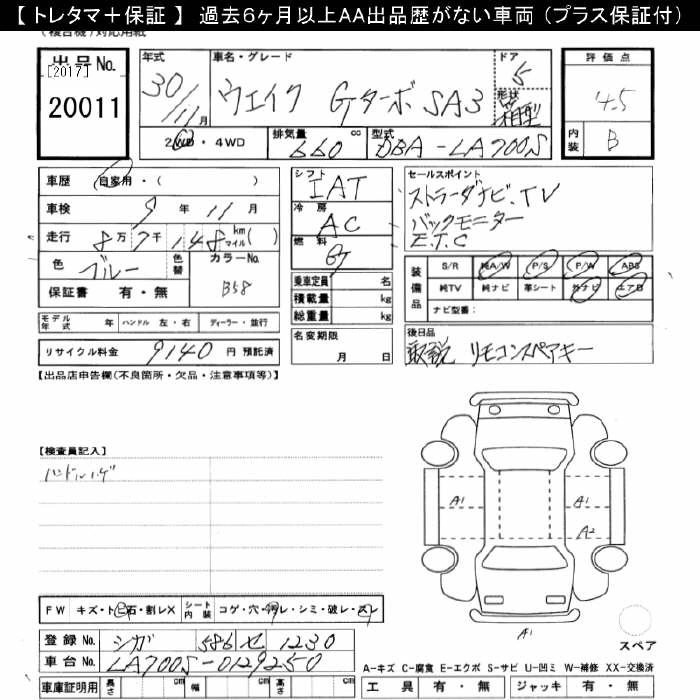 【 トレタマ＋保証 】 過去６ヶ月以上ＡＡ出品歴がない車両（プラス保証付）
(複合機)対応用紙
出品No.
[2017]
20011
年式
30/11月
車名・グレード
ウエイク Gターボ SA3
ドア
5
形状
箱型
2WD・4WD
排気量
660
cc
型式
DBA-LA700S
評価点
4.5
内装
B
車歴 自家用・( )
車検 9年 11月
走行 8万 7千 148 km マイル( )
色 ブルー 色替 カラーNo. B58
保証書 有・無
シフト
IAT
冷房
AC
燃料
G
乗車定員 名
積載量 kg
総重量 kg
セールスポイント
ストラーダナビ.TV
バックモニター
E.T.C
装備品
S/R 純A/W P/S P/W ABS
純TV 純ナビ 革シート 外ナビ エアB
ナビ型番:
モデル年式 年 ハンドル 左・右 ディーラー・並行
名変期限
月 日
後日品
取説 リモコンスペアキー
リサイクル料金 9140 円 預託済
【出品店申告欄(不良箇所・欠品・注意事項等)】
【検査員記入】
ハンドルハゲ
A1
A1
A2
A1
FW キズ・ト ビ石・割レX シート内装 コゲ・穴・切レ・シミ・破レ・スレ
登録No. シガ 586 せ 1230
車台No. LA700S-0129250
車庫証明用 長さ cm 幅 cm 高さ cm
スペア
A-キズ C-腐食 E-エクボ S-サビ U-凹ミ W-補修 XX-交換済
工具 有・無 ジャッキ 有・無